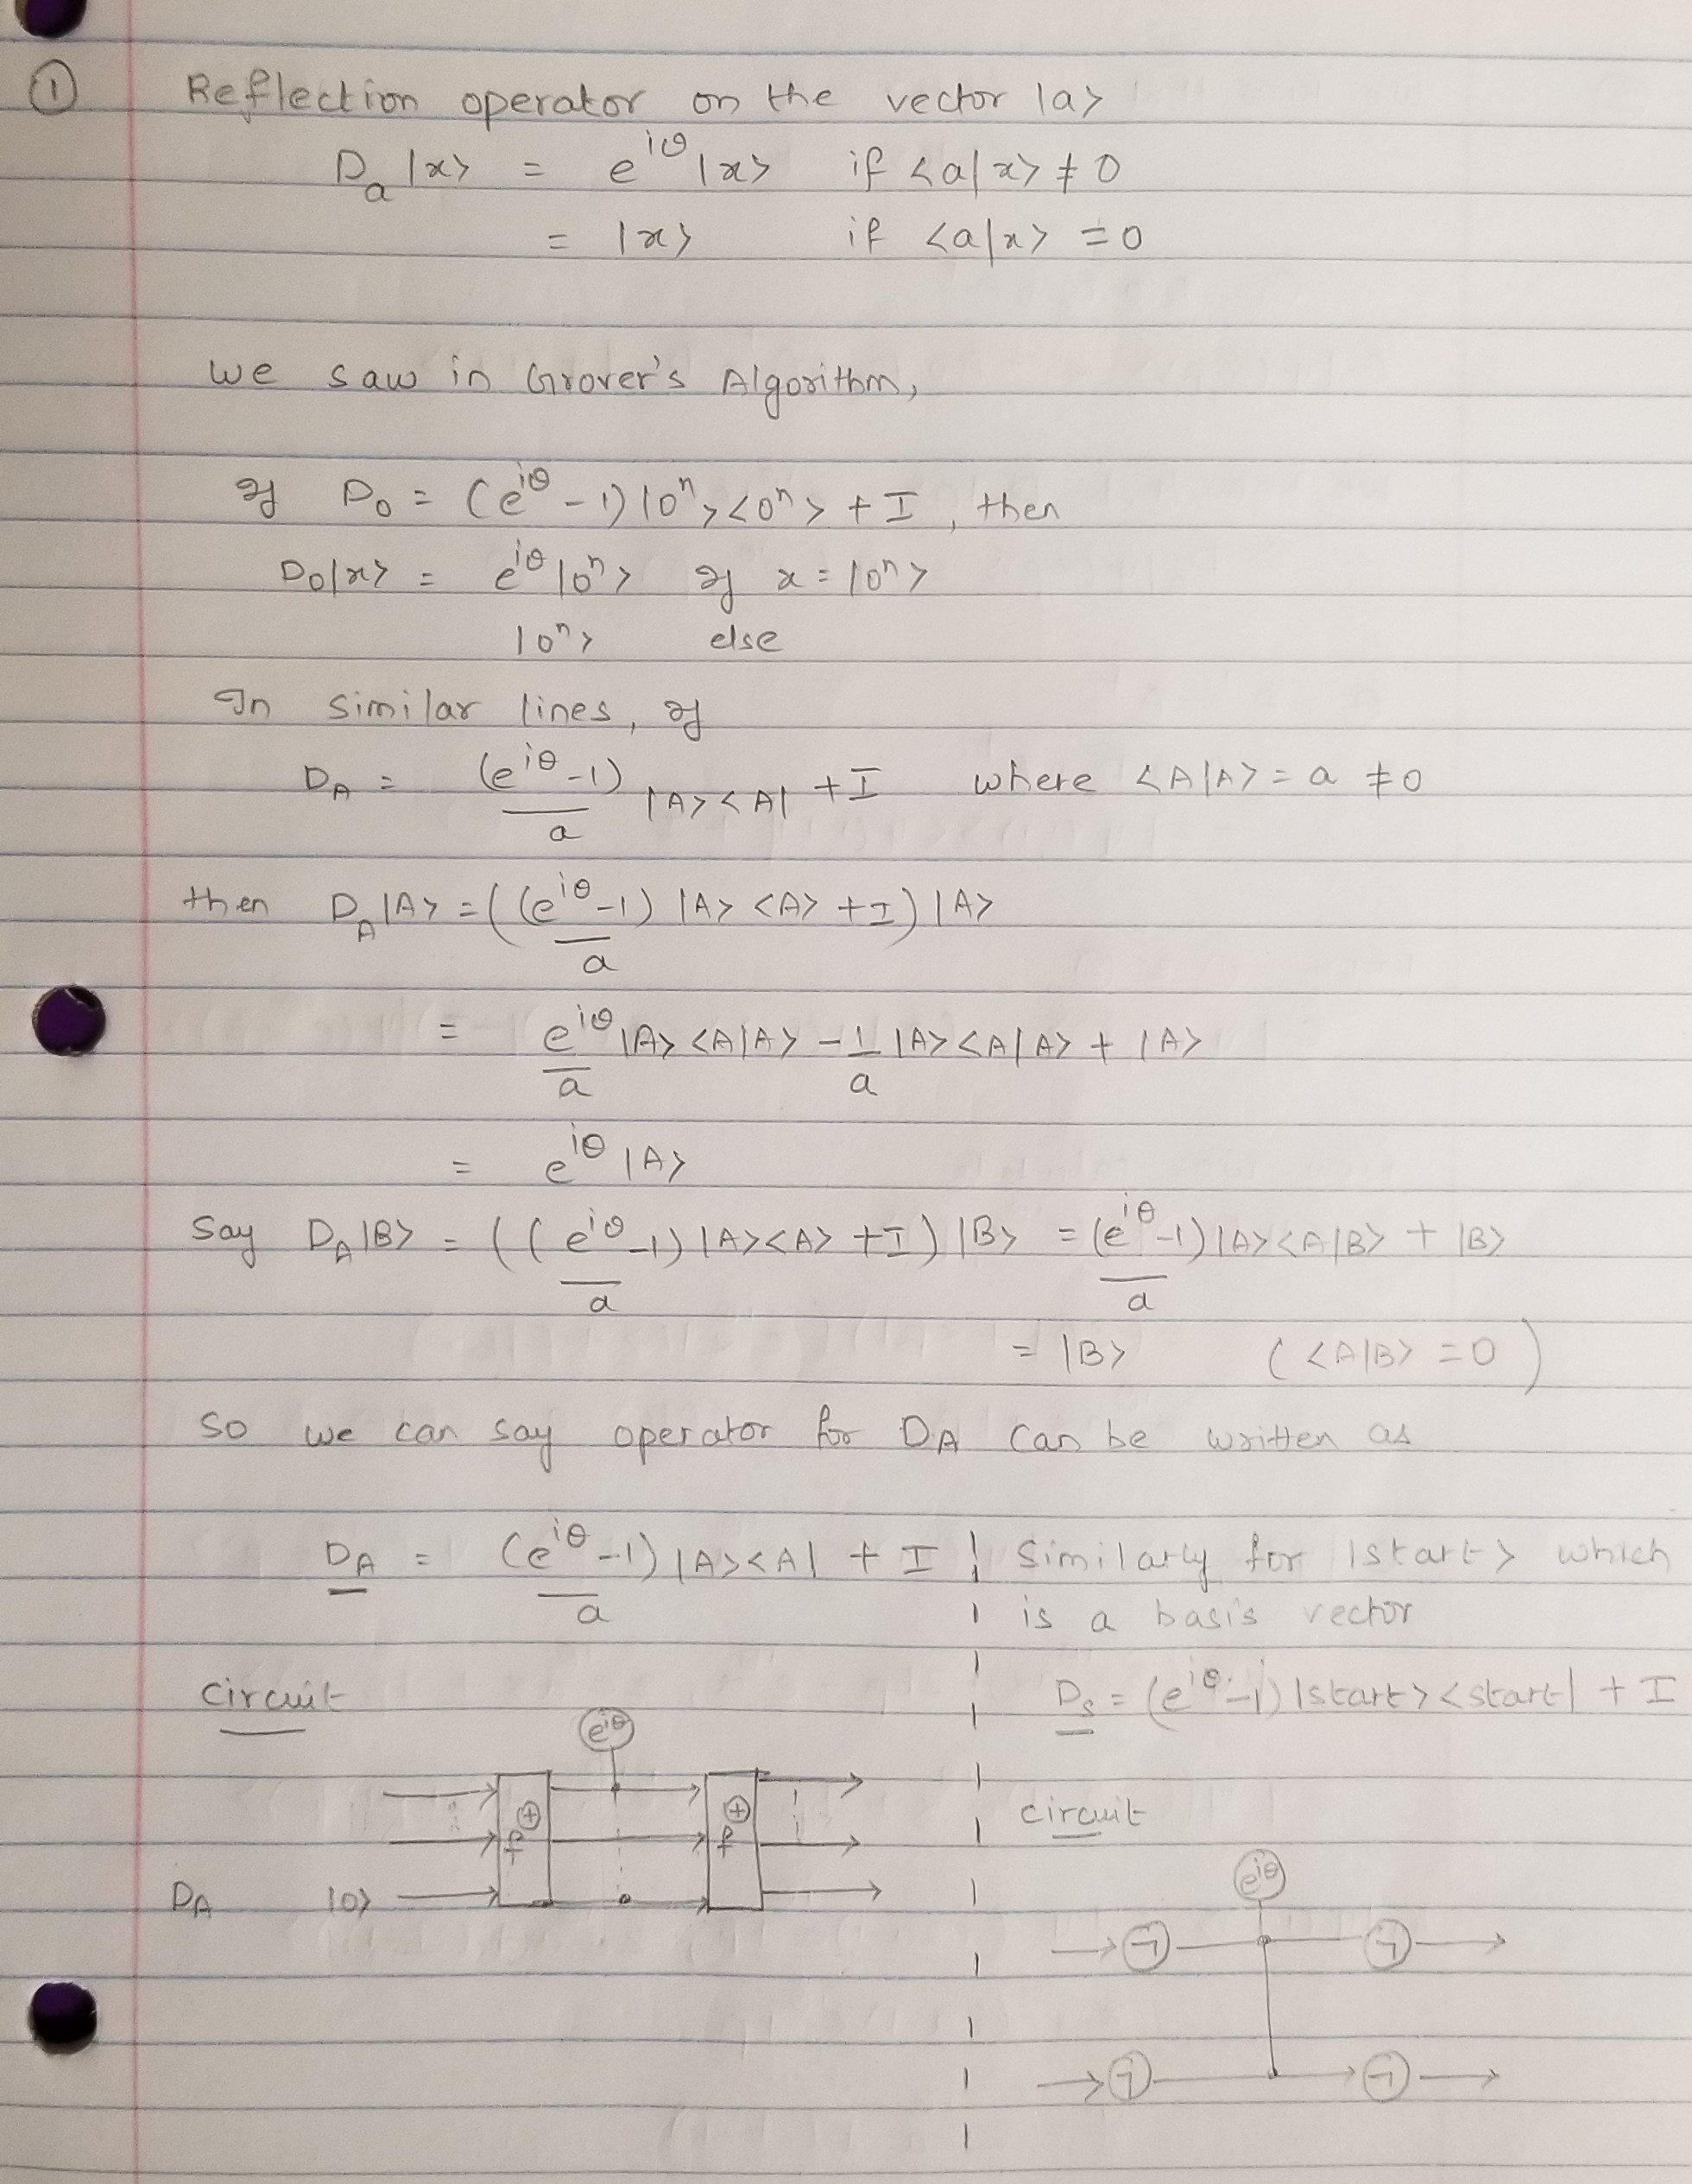 ① Reflection operator on the vector |a>
D_a |x> = e^{iθ} |x> if <a|x> ≠ 0
= |x> if <a|x> = 0
we saw in Grover's Algorithm,
If D_0 = (e^{iθ} - 1) |0^n> <0^n> + I, then
D_0|x> = e^{iθ} |0^n> if x = |0^n>
|0^n> else
In similar lines, if
D_A = (e^{iθ} - 1)/a |A> <A| + I where <A|A> = a ≠ 0
then D_A |A> = ((e^{iθ} - 1)/a |A> <A> + I) |A>
= e^{iθ}/a |A> <A|A> - 1/a |A> <A|A> + |A>
= e^{iθ} |A>
Say D_A |B> = ((e^{iθ} - 1)/a |A> <A> + I) |B> = (e^{iθ} - 1)/a |A> <A|B> + |B>
= |B> (<A|B> = 0)
So we can say operator for D_A can be written as
D_A = (e^{iθ} - 1)/a |A> <A| + I
Circuit
e^{iθ}
⊕ ⊕
f f
D_A |0>
Similarly for |start> which
is a basis vector
D_s = (e^{iθ} - 1) |start> <start| + I
circuit
e^{iθ}
¬ ¬
¬ ¬